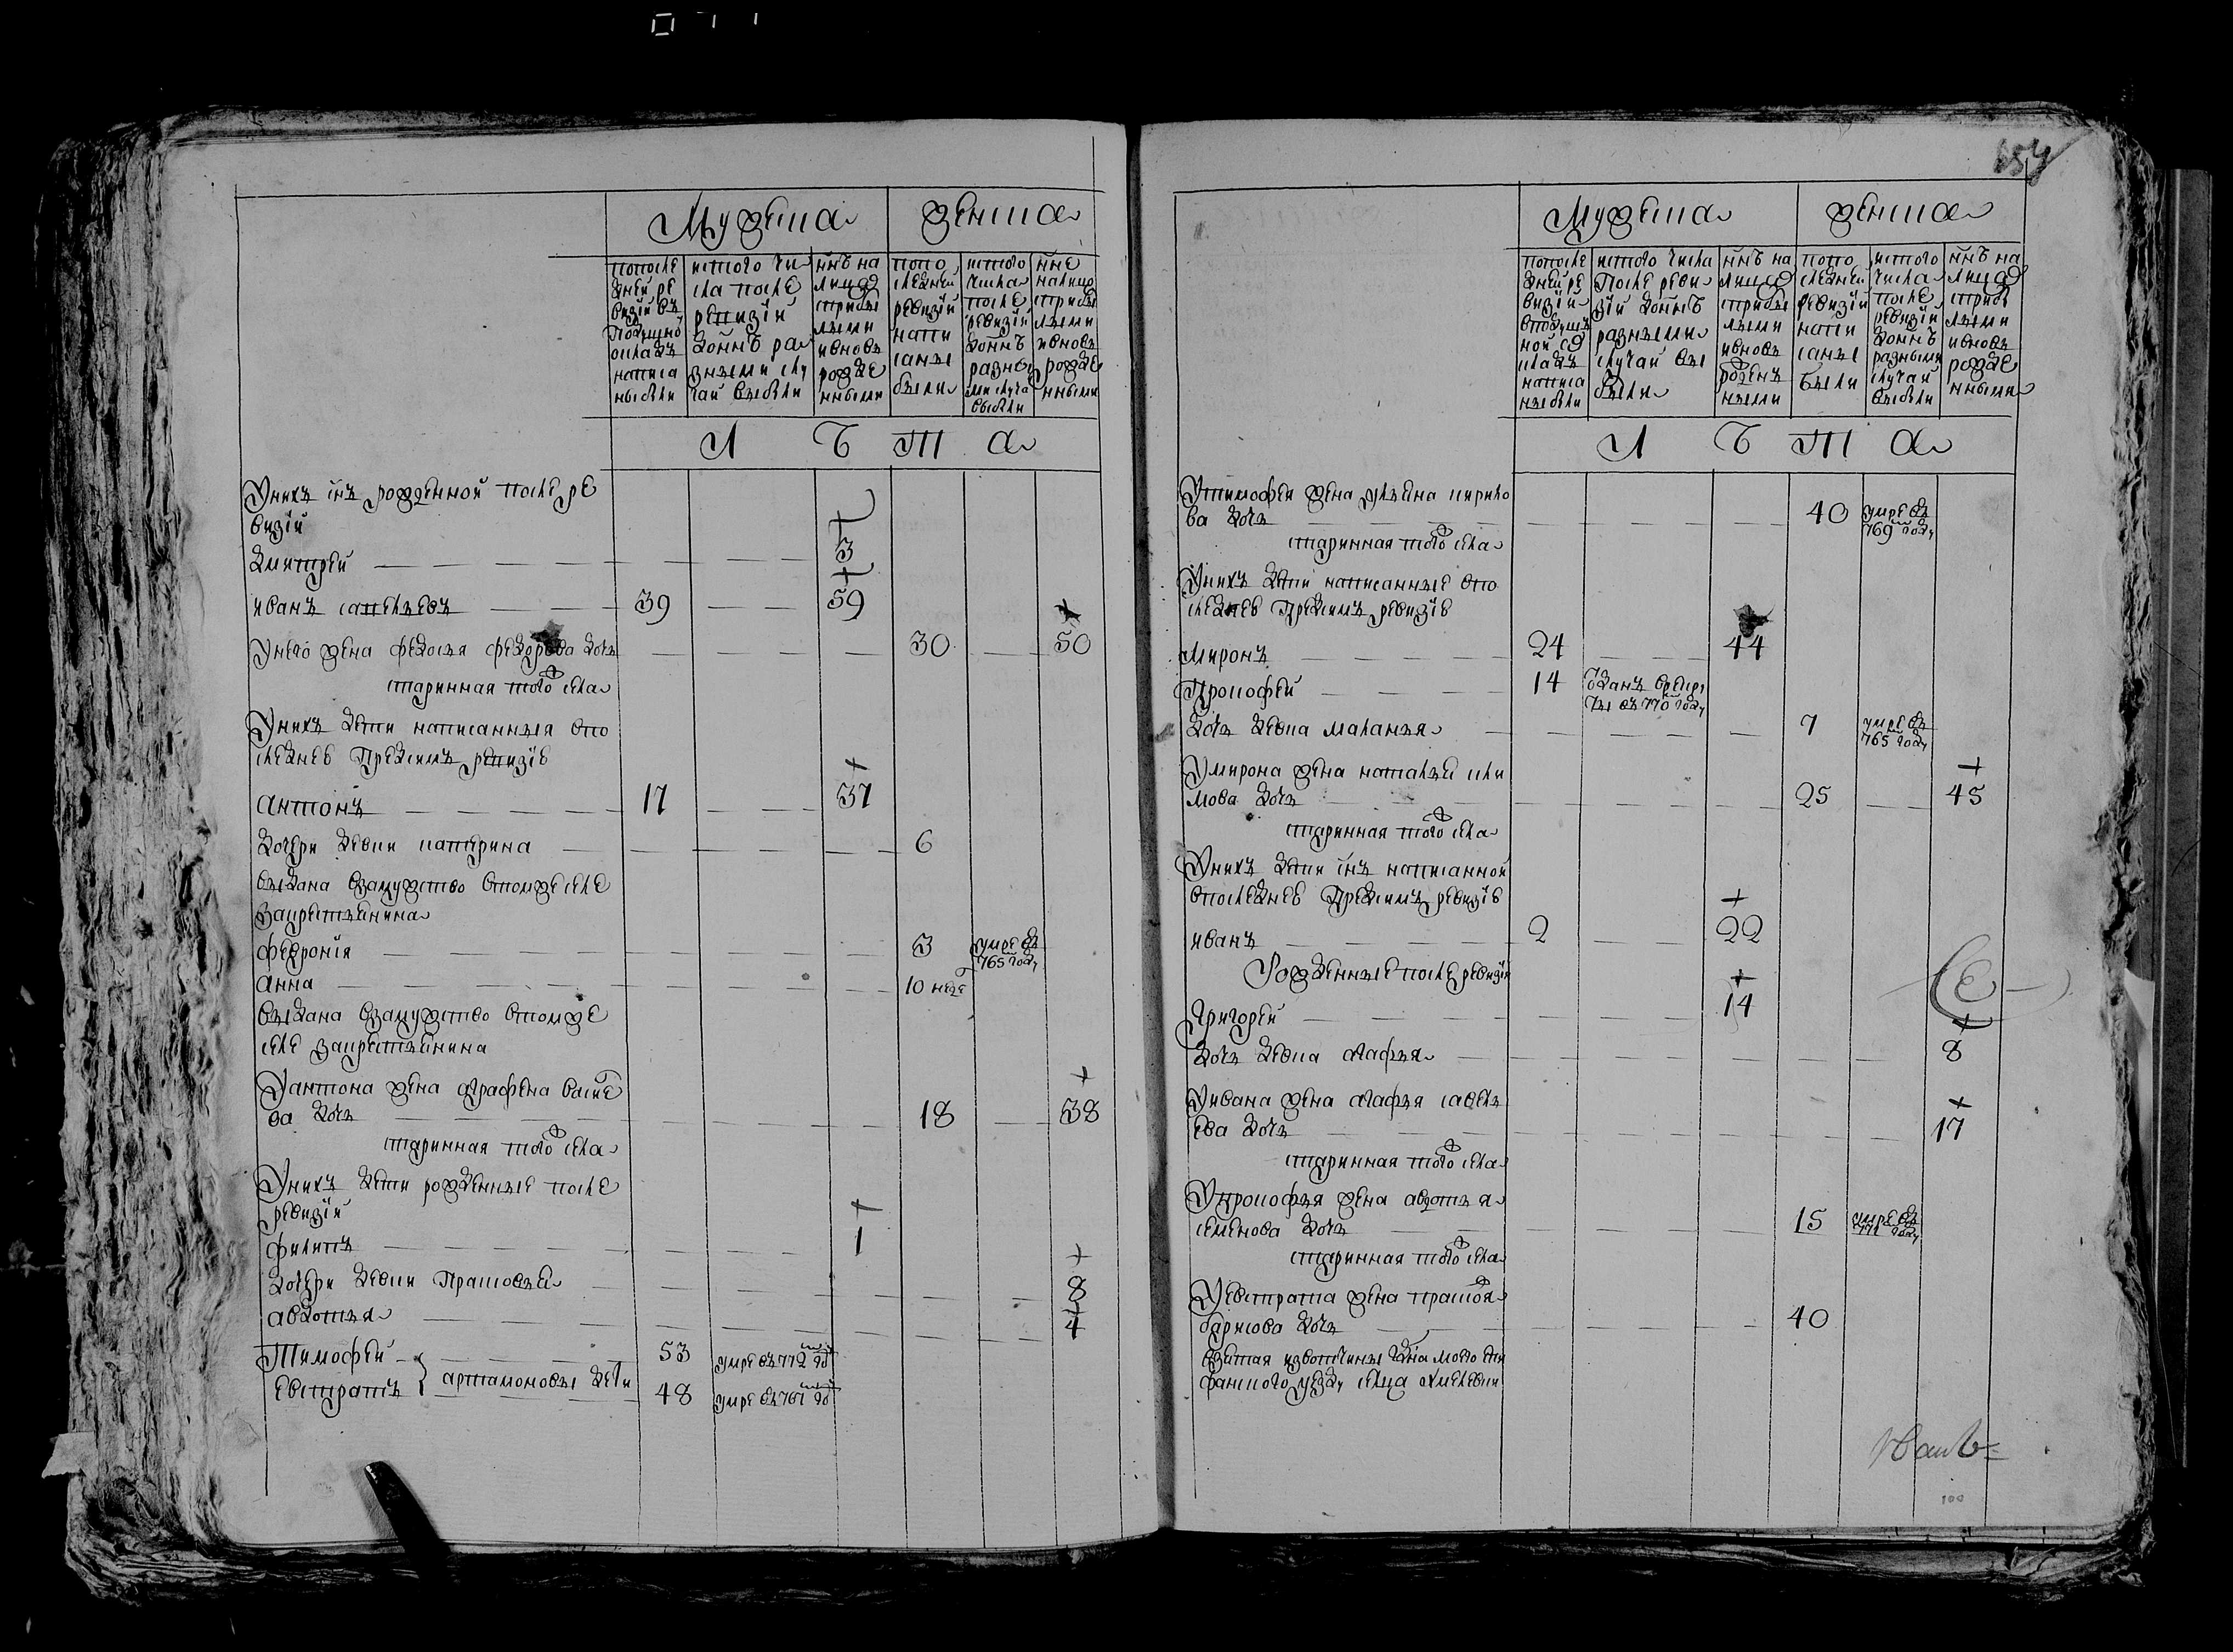 Мужеска
женска
попосле
дней ре
визїи въ
Подушно
окладъ
написа
ны были
истого чи
сла после
ревизїи
доннѣ ра
зными слу
чаи выбыли
ннѣ на
лицо
сприбы
лыми
ивновь
рожде
нными
попо
следней
ревизїи
напи
саны
были
истого
числа
после
ревизїи
доннѣ
разны
ми случа
выбыли
нне
налицо
сприбы
лыми
ивновь
рожде
нными
Л Ѣ т а
Униxъ снъ рожденной после ре
визїи
Дмитрей 3
иванъ савельевъ 39 59
Унего жена федосья федорова дочь 30 50
старинная того села
Унихъ дети написанныя впо
следнев Предсимъ ревизїе
антонъ 17 37
дочери девки катерина 6
выдана взамужство втомже селе
закрестьянина
феврония 3 умре въ
765 году
анна 10 неде
выдана взамужство втомже
селе закрестьянина
Уантона жена аграфена василе
ва дочь 18 38
старинная того села
Унихъ дети рожденные после
ревизїи
филипъ 1
дочери девки Прасковья 8
авдотья 4
Тимофей 53 умре въ 772 го
евстратъ артамоновы дети 48 умре въ 767 го
Мужеска
женска
попосле
дней ре
визїи
вподуш
ной о
кладъ
написа
ны были
истого числа
После реви
зїи доннѣ
разными
случаи вы
были
ннѣ на
лицо
сприбы
лыми
ивновь
рожен
ными
попо
следней
ревизїи
напи
саны
были
истого
числа
после
ревизїи
доннѣ
разными
случаи
выбыли
ннѣ на
лицо
сприбы
лыми
ивновь
рожде
нными
Л Ѣ т а
Утимофея жена ульяна кирило
ва дочь 40 умре въ
769 году
старинная того села
Унихъ дети написанные впо
следнев Предсимъ ревизїе
миронъ 24 44
Прокофей 14 отданъ врекру
ты въ 770 году
дочь девка маланья 7 умре въ
765 году
Умирона жена наталья кли
мова дочь 25 45
старинная того села
Унихъ дети снъ написанной
впоследнев Предсимъ ревизїе
иванъ 2 22
Рожденные после ревизїи
Григорей 14
дочь девка агафья 8
Уивана жена агафья савель
ева дочь 17
старинная того села
Упрокофья жена авдотья
семенова дочь 15 умре въ
771 году
старинная того села
Уевстрата жена прасковья
борисова дочь 40
взятая извотчины